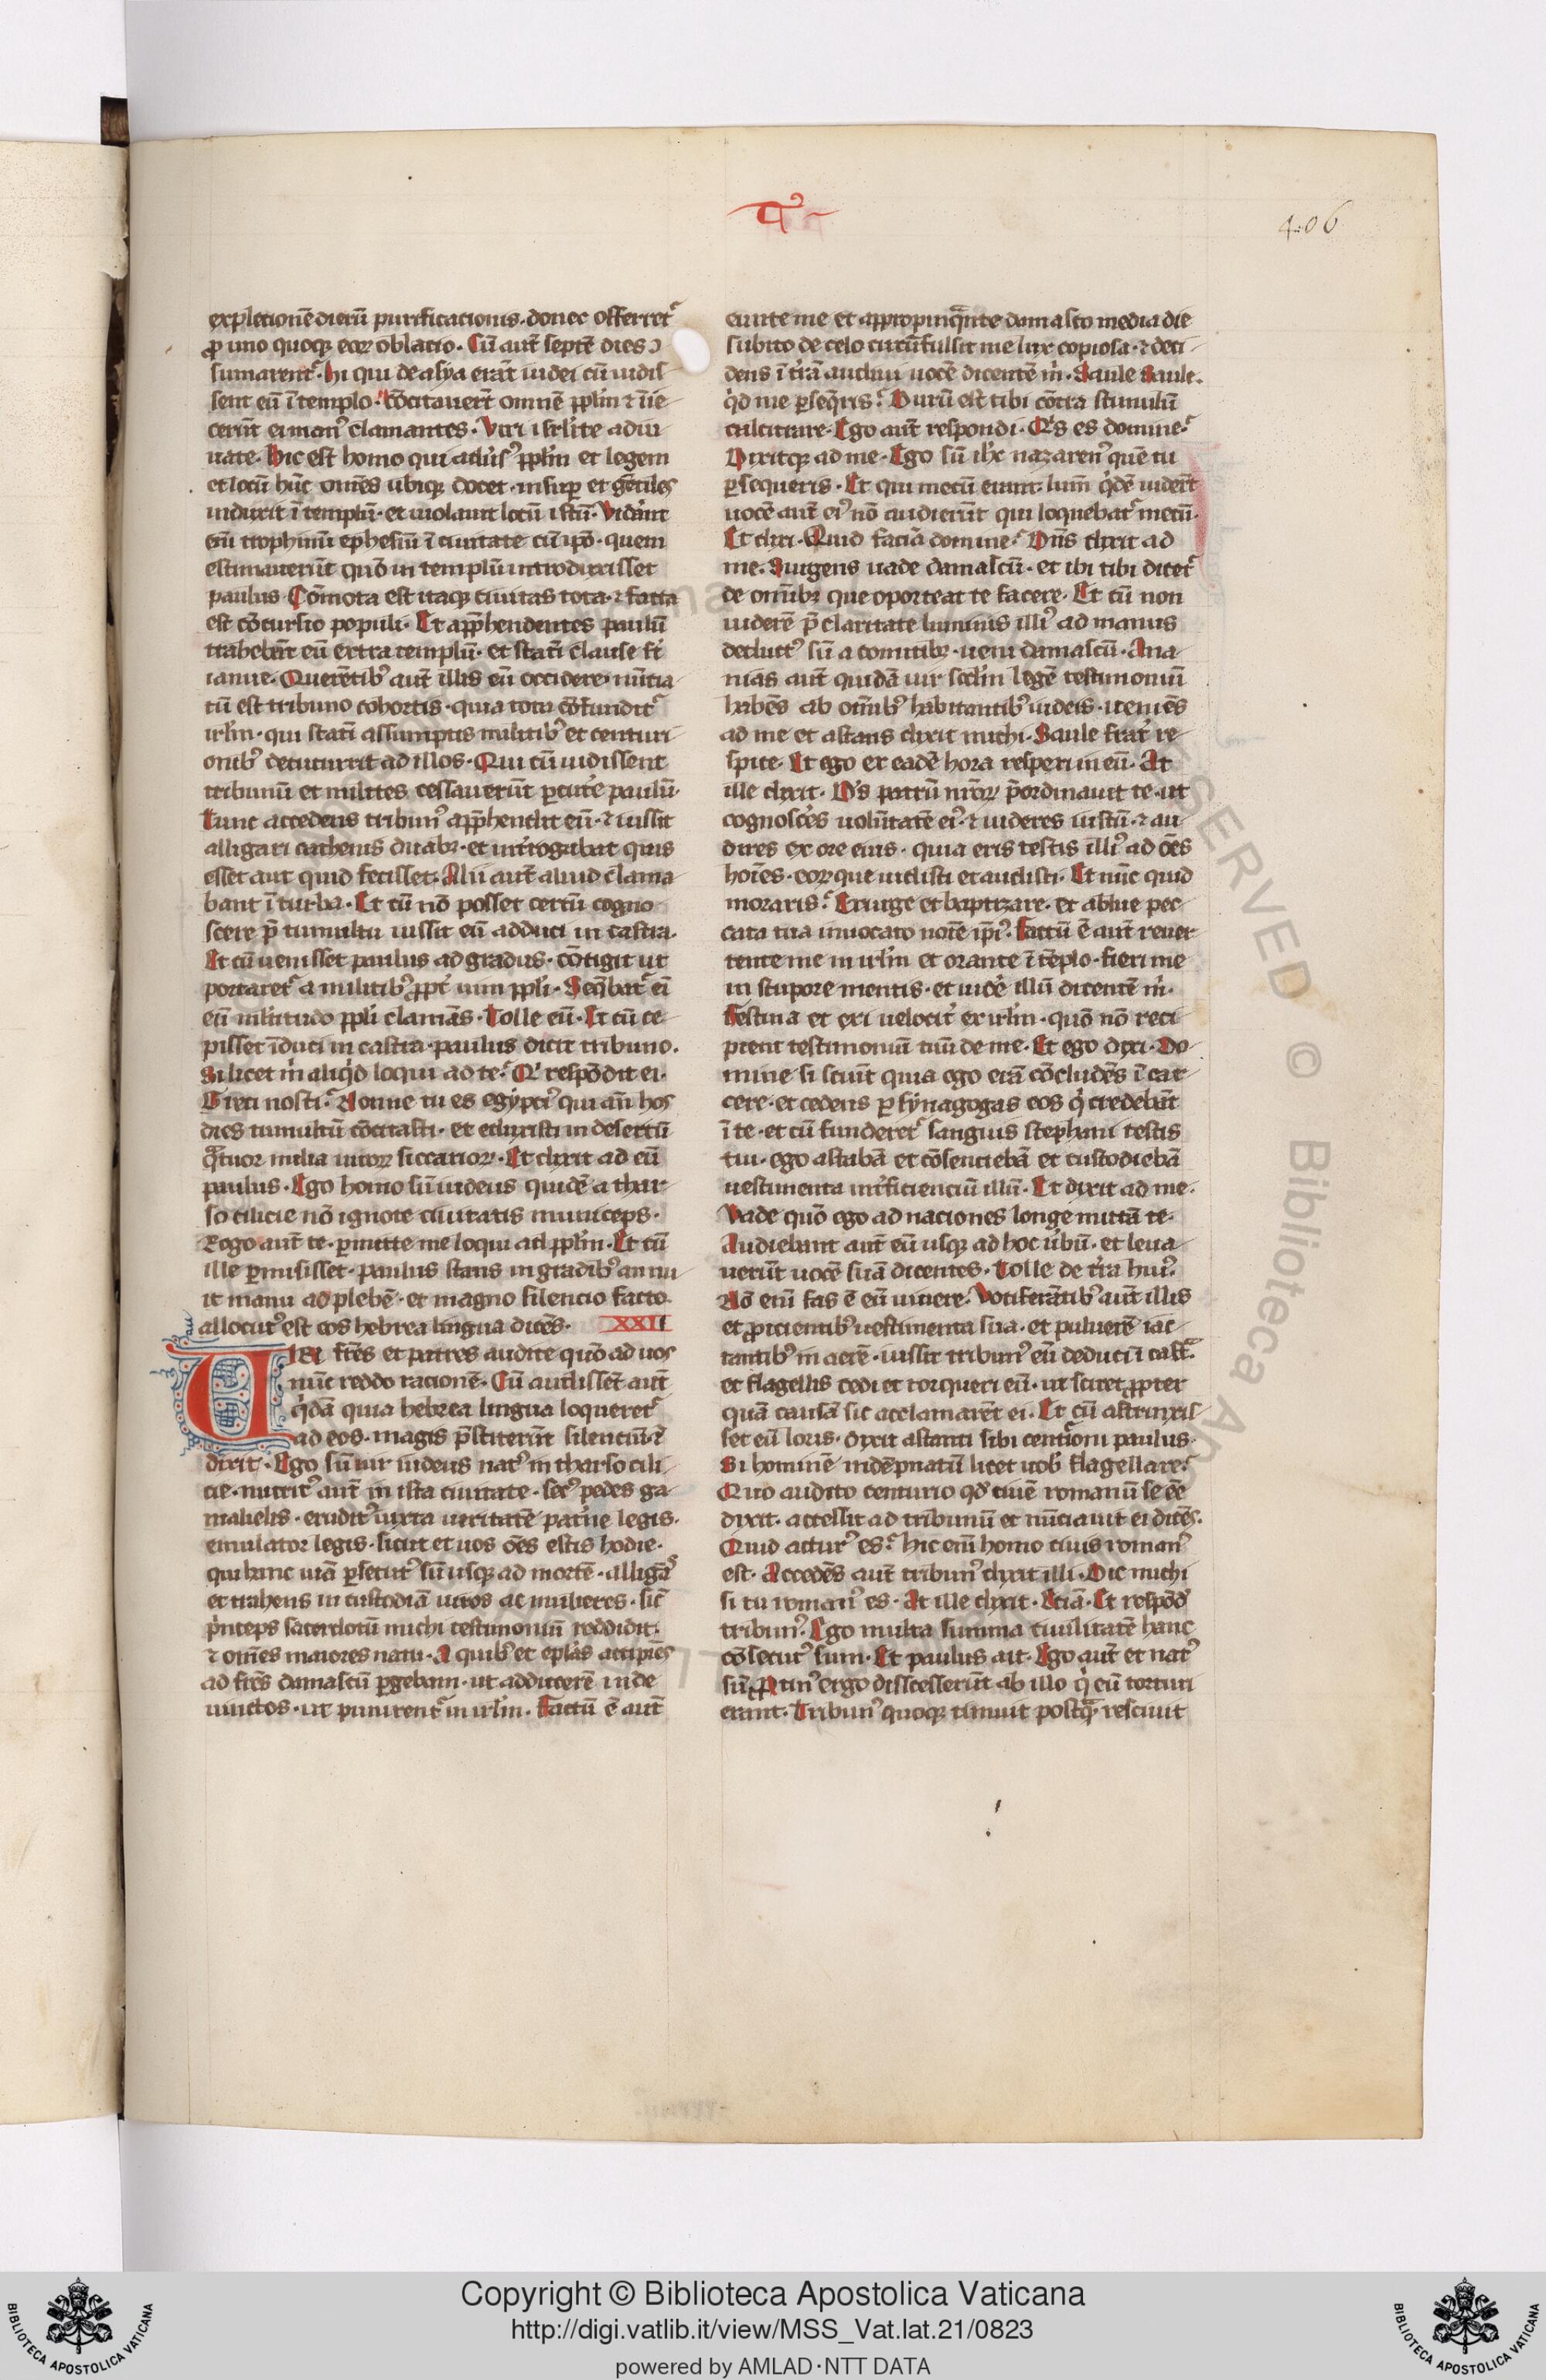 406
expletionē dierū purificacionis · donec offerret᷑
ꝓ uno quoqꝫ eoꝝ oblatio · Cū aut̄ septē dies ↄ
sumarent᷑ · hi qui de asya erāt iudei cū uidis
sent eū ī templo · cōcitauerт̄ omnē pplm̄ ⁊ īie
cerūt ei manꝰ clamantes · Viri isrl̄ite adiu
uate · Hic est homo qui adusꝰ pplm̄ et legem
et locū hūc omēs ubiqꝫ docet · insuꝑ et gētiles
induxit ī templū · et uiolauit locū istū · Viderāt
eīn trophimū ephesiū ī ciuitate cū ipō · quem
estimauerūt quō in templū introduxisset
paulus · Cōmota est itaqꝫ ciuitas tota · ⁊ facta
est cōcursio populi · Et app̄hendentes paulū
trahebāt eū extra templū · et statī clause st̄
ianue · Querētibꝰ aut̄ illis eū occidere · nūtia
tū est tribuno cohortis · quia tota cōfundit᷑
irl̄m · qui statī assumptis militibꝰ et centuri
onibꝰ decucurrit ad illos · Qui cū uidissent
tribunū et milites cessauerūt ꝑcute᷑ paulū ·
Tunc accedens tribunꝰ app̄hendit eū · ⁊ iussit
alligari cathenis duabꝫ · et int̄rogabat quis
esset aut quid fecisset · Alii aut̄ aliud clama
bant ī turba · Et cū nō posset certū cogno
scere p̄ tumultu iussit eū adduci in castra ·
Et cū uenisset paulus ad gradus · cōtigit ut
portaret᷑ a militibꝰ ꝓpt̄ uim ppl̄i · Seq̄bat᷑ eī
eū ml̄titudo ppl̄i clamās · Tolle eū · Et cū ce
pisset īduci in castra · paulus dicit tribuno ·
Si licet m̍ aliq̍d loqui ad te · Qⁱ respōdit ei ·
Greci nosti · Nonne tu es egyptiꝰ qui an̄ hos
dies tumultū cōcitasti · et eduxisti in desertū
q̄tuor milia uiroꝝ siccarioꝝ · Et dixit ad eū
paulus · Ego homo sū iudeus quidē a thar
so cilicie nō ignote ciuitatis municeps ·
Rogo aut̄ te · ꝑmitte me loqui ad pplm̄ · Et cū
ille ꝑmisisset · paulus stans in gradibꝰ annu
it manu ad plebē · et magno silencio facto
allocutꝰ est eos hebrea lingua dicēs · XXII
VIRI fr̄es et patres audite quō ad uos
nūc reddo racionē · Cū audissēt aut̄
q̍dā quia hebrea lingua loqueret᷑
ad eos · magis p̄stiterūt silenciū · ⁊
dixit · Ego sū uir iudeus natꝰ in tharso cili
cie · nutritꝰ aut̄ in ista ciuitate · secꝰ pedes ga
malielis · eruditꝰ iuxta ueritatē pat̄ne legis ·
emulator legis · sicut et uos oēs estis hodie ·
qui hanc uiā ꝑsecutꝰ sū usqꝫ ad mortē · alligās
et trahens in custodiā uiros ac mulieres · sic̄
p̍nceps sacerdotū michi testimoniū reddidit ·
⁊ omēs maiores natu · A quibꝰ et ep̄las accipiēs
ad fr̄es damascū ꝑgebam · ut adducerē inde
uinctos · ut punirent᷑ in irl̄m · Factū ē aut̄
eunte me et appropinq̄nte damasco media die
subito de celo circūfulsit me lux copiosa · ⁊ deci
dens ī t̄rā audiui uocē dicentē m̍ · Saule Saule ·
q̍d me ꝑseq̄ris · Durū est tibi cōtra stimulū
calcitrare · Ego aut̄ respondi · Qⁱs es domine
Dixitqꝫ ad me · Ego sū ihc nazarenꝰ quē tu
ꝑsequeris · Et qui mecū erant lum̄ q̍dē uiderт̄
uocē aut̄ eiꝰ nō audierūt qui loquebat᷑ mecū ·
Et dixi · Quid faciā domine · Dn̄s dixit ad
me · Surgens uade damascū · et ibi tibi dicet᷑
de omībꝫ que oporteat te facere · Et cū non
uiderē p̄ claritate luminis illiꝰ ad manus
deductꝰ sū a comitibꝫ · ueni damascū · Ana
nias aut̄ quidā uir scd̄m legē testimoniū
habēs ab omībꝰ habitantibꝰ iudeis · ueniēs
ad me et astans dixit michi · Saule frat̄ re
spice · Et ego ex eadē hora respexi in eū · At
ille dixit · Dˢ patrū nr̄oꝝ p̄ordinauit te · ut
cognoscēs uolūtatē eiꝰ · ⁊ uideres iustū · ⁊ au
dires ex ore eius · quia eris testis illiꝰ ad oēs
hoīes · eoꝝ que uidisti et audisti · Et nūc quid
moraris · Exurge et baptizare · et ablue pec
cata tua inuocato noīe ipīꝰ · Factū ē aut̄ reuer
tente me in irl̄m et orante ī tēplo · fieri me
in stupore mentis · et uide᷑ illū dicentē m̍ ·
Festina et exi velocit̄ ex irl̄m · quō nō reci
pient testimoniū tuū de me · Et ego dixi · Do
mine si sciūt quia ego erā cōcludēs ī car
cere · et cedens ꝑ synagogas eos q̍ credebāt
ī te · et cū funderet᷑ sanguis stephani testis
tui · ego astabā et cōsenciebā et custodiebā
uestimenta int̄ficienciū illū · Et dixit ad me ·
Vade quō ego ad naciones longe mittā te ·
Audiebant aut̄ eū usqꝫ ad hoc ūbū · et leua
uerūt uocē suā dicentes · Tolle de t̄ra huiꝰ ·
Nō enī fas ē eū uiuere · Vociferātibꝰ aut̄ illis
et ꝓicientibꝰ uestimenta sua · et puluerē iac
tantibꝰ in aerē · iussit tribunꝰ eū deduci ī castᷓ
et flagellis cedi et torqueri eū · ut sciret ꝓpter
quā causā sic acclamarēt ei · Et cū astrinxis
set eū loris · dixit astanti sibi centᷣioni paulus ·
Si hominē indēpnatū licet uob̄ flagellare ·
Quo audito centurio qd̄ ciuē romanū se eē
dixit · accessit ad tribunū et nūciauit ei dicēs ·
Quid acturꝰ es · hic enī homo ciuis romanꝰ
est · Accedēs aut̄ tribunꝰ dixit illi · Dic michi
si tu romanꝰ es · At ille dixit · Etiā · Et respōd̄
tribunꝰ · Ego multa summa ciuilitatē hanc
cōsecutꝰ sum · Et paulus ait · Ego aut̄ et natꝰ
sū · Ꝓtinꝰ ergo disscesserūt ab illo q̍ eū torturi
erant · Tribunꝰ quoqꝫ timuit postq̄ resciuit
RESERVED © Biblioteca Apostolica Vaticana
Copyright © Biblioteca Apostolica Vaticana
http://digi.vatlib.it/view/MSS_Vat.lat.21/0823
powered by AMLAD·NTT DATA
BIBLIOTECA APOSTOLICA VATICANA
BIBLIOTECA APOSTOLICA VATICANA